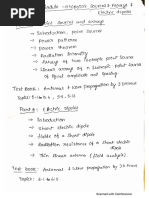 Module - Antenna Sources & Arrays &
Electric dipoles
Point Sources and arrays
→ Introduction, point source
→ Power patterns
→ Power theorem
→ Radiation Intensity
→ Arrays of two isotropic point sources
→ Linear arrays of n Isotropic point sources
of equal amplitude and spacing
Text Book: Antennas & Wave propagation by J D Krauss
Topics:
Electric dipoles
→ Introduction
→ Short electric dipole
→ Fields of a Short dipole
→ Radiation Resistance of a Short electric
dipole
→ Thin linear antenna (field analysis)
Text book: Antennas & Wave propagation by J D Krauss
Topic:
Scanned with CamScanner